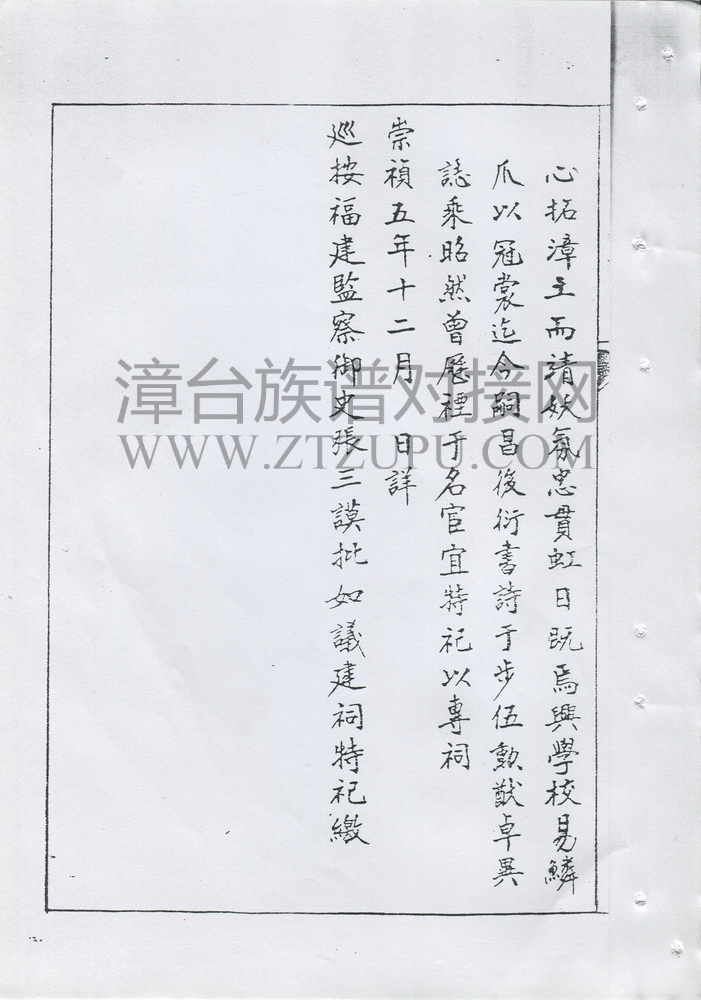 心拓漳土而靖妖氛忠貫虹日既焉興學校易鱗
爪以冠裳迄今嗣昌後衍書詩于步伍勳猷卓異
誌乘昭然曾歷禋于名宦宜特祀以專祠
崇禎五年十二月 日詳
巡按福建監察御史張三謨批如議建祠特祀繳
漳台族谱对接网
WWW.ZTZUPU.COM